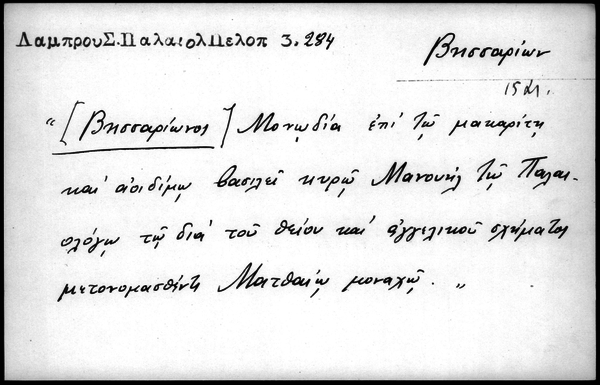 ΛαμπρουΣ.ΠαλαιολΠελοπ 3.284
Βησσαρίων
15 αι.
"[Βησσαρίωνος] Μονῳδία ἐπὶ τῷ μακαρίτῃ
καὶ ἀοιδίμῳ βασιλεῖ κυρῷ Μανουὴλ τῷ Παλαι-
ολόγῳ τῷ διὰ τοῦ θείου καὶ ἀγγελικοῦ σχήματος
μετονομασθέντι Ματθαίῳ μοναχῷ. "